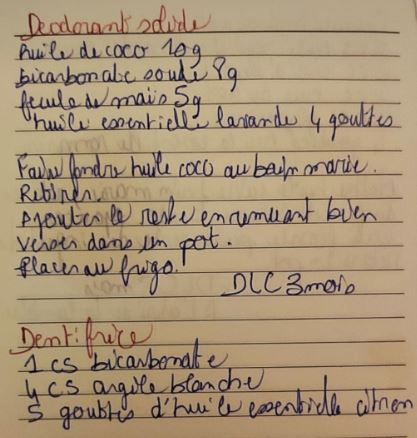 Deodorant solide
huile de coco 10g
bicarbonate soude 8g
fecule de maïs 5g
huile essentielle lavande 4 gouttes
Faire fondre huile coco au bain marie.
Retirer.
Ajouter le reste en remuant bien
verser dans un pot.
Placer au frigo.
DLC 3 mois
Dentifrice
1 cs bicarbonate
4 cs argile blanche
5 gouttes d'huile essentielle citron